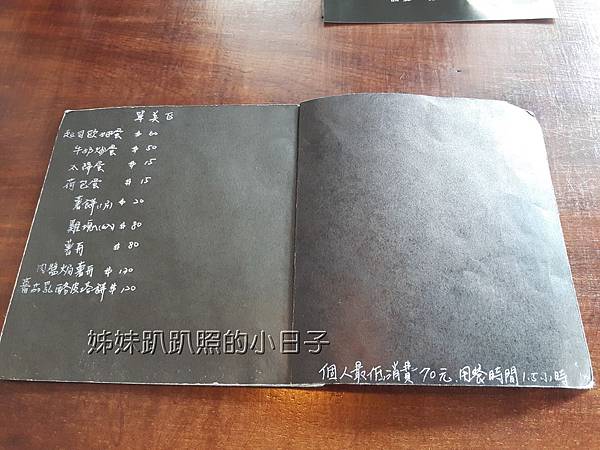 單美區
起司歐姆蛋 $60
牛奶炒蛋 $50
太陽蛋 $15
荷包蛋 $15
薯餅(1片) $20
雞塊(6入) $80
薯角 $80
肉醬焗薯角 $120
$120
姊妹趴趴照的小日子
個人最低消費70元.用餐時間1.5小時